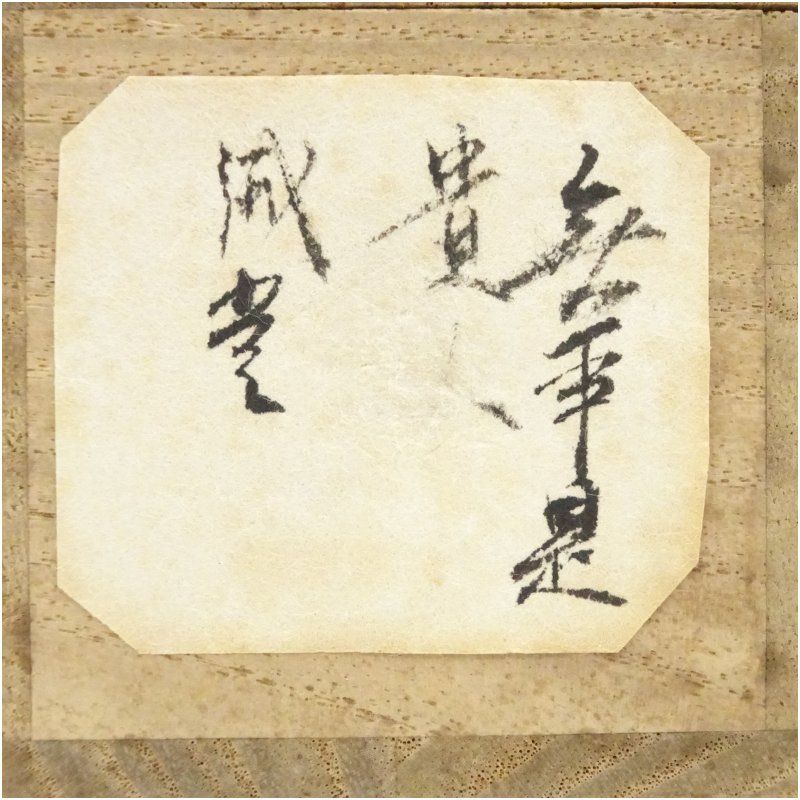 無事是
貴人
誡堂